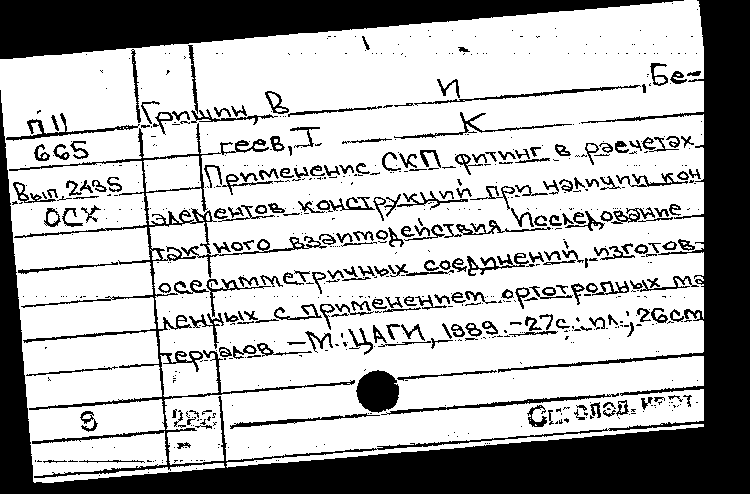 П 11
665
Вып. 2435
ОСХ
Гришин, В И , Бе-
геев, Т К
Применение СКП фитинг в расчетах
элементов конструкций при наличии кон
тактного взаимодействия. Исследование
осесимметричных соединений, изготов-
ленных с применением ортотропных ма
териалов – М.: ЦАГИ, 1989. – 27с.: ил.; 26см
9 282
См. след. карт.